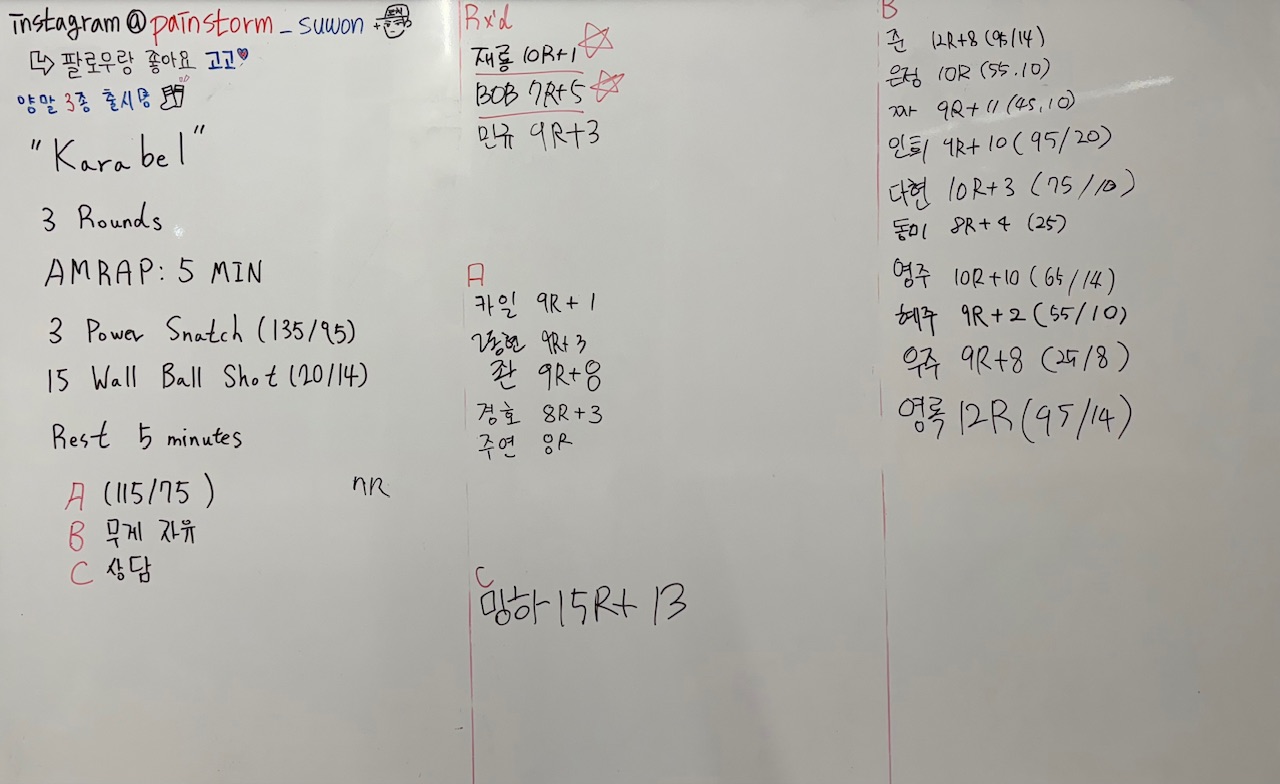 instagram@painstorm_suwon +
팔로우랑 좋아요 고고♥
양말 3종 출시
"Karabel"
3 Rounds
AMRAP: 5 MIN
3 Power Snatch (135/95)
15 Wall Ball Shot (20/14)
Rest 5 minutes
A (115/75)
B 무게 자유
C 상담
nR
Rx'd
재룡 10R+1
BOB 7R+5
민규 9R+3
A
카일 9R+1
9R+3
좐 9R+8
경호 8R+3
주연 8R
C
밍하 15R+13
B
준 12R+8 (95/14)
은정 10R (55.10)
짜 9R+11 (45.10)
인희 9R+10 (95/20)
다현 10R+3 (75/10)
동미 8R+4 (25)
영주 10R+10 (65/14)
혜주 9R+2 (55/10)
우주 9R+8 (25/8)
영록 12R (95/14)